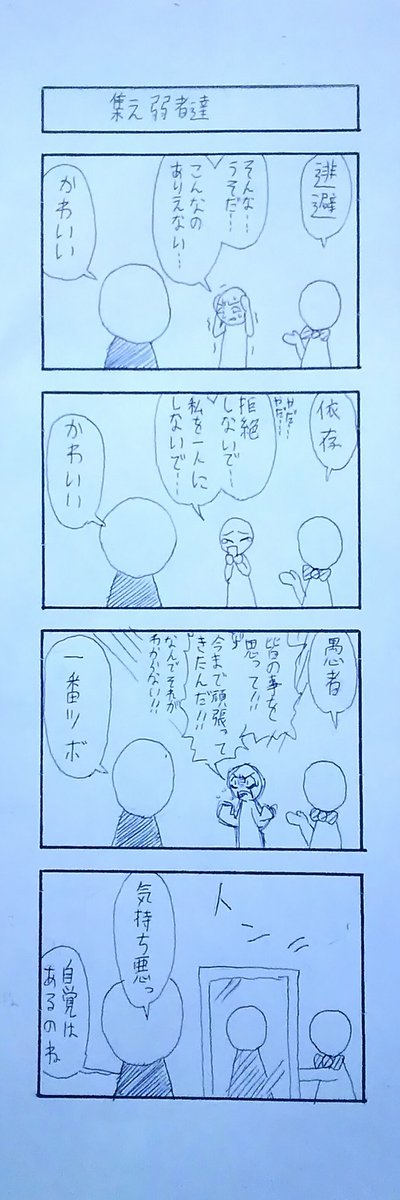 集え弱者達
逃避
そんな…
うそだ…
こんなの
ありえない…
かわいい
依存
やだ…
やだ…
拒絶
しないで…
私を一人に
しないで…
かわいい
愚者
皆の事を
思って!!
今まで頑張って
きたんだ!!
なんでそれが
わかんない!!
一番ツボ
トン
気持ち悪っ
自覚は
あるのね